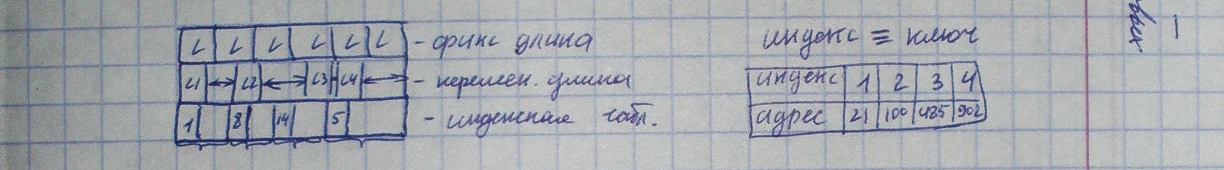 L L L L L L - фикс длина
L1 L2 L3 L4 - перемен. длина
1 8 14 5 - индексная табл.
индекс ≡ ключ
индекс 1 2 3 4
адрес 21 100 485 902